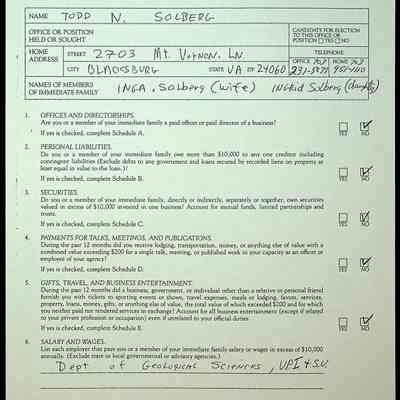 NAME TODD N. SOLBERG
OFFICE OR POSITION HELD OR SOUGHT
CANDIDATE FOR ELECTION TO THIS OFFICE OR POSITION YES NO
HOME ADDRESS STREET 2703 Mt. Vernon Ln
TELEPHONE
CITY BLACKSBURG STATE VA ZIP 24060
OFFICE 703 231-5871 HOME 703
NAMES OF MEMBERS OF IMMEDIATE FAMILY INGA, Solberg (wife) INGRId Solberg (daughter)
1. OFFICES AND DIRECTORSHIPS.
Are you or a member of your immediate family a paid officer or paid director of a business?
If yes is checked, complete Schedule A. YES NO
2. PERSONAL LIABILITIES.
Do you or a member of your immediate family owe more than $10,000 to any one creditor including
contingent liabilities (Exclude debts to any government and loans secured by recorded liens on property at
least equal to value to the loan.)?
If yes is checked, complete Schedule B. YES NO
3. SECURITIES.
Do you or a member of your immediate family, directly or indirectly, separately or together, own securities
valued in excess of $10,000 invested in one business? Account for mutual funds, limited partnerships and
trusts.
If yes is checked, complete Schedule C. YES NO
4. PAYMENTS FOR TALKS, MEETINGS, AND PUBLICATIONS.
During the past 12 months did you receive lodging, transportation, money, or anything else of value with a
combined value exceeding $200 for a single talk, meeting, or published work in your capacity as an officer or
employee of your agency?
If yes is checked, complete Schedule D. YES NO
5. GIFTS, TRAVEL, AND BUSINESS ENTERTAINMENT.
During the past 12 months did a business, government, or individual other than a relative or personal friend
furnish you with tickets to sporting events or shows, travel expenses, meals or lodging, favors, services,
property, loans, money, gifts, or anything else of value, the total value of which exceeded $200 and for which
you neither paid nor rendered services in exchange? Account for all business entertainment (except if related
to your private profession or occupation) even if unrelated to your official duties.
If yes is checked, complete Schedule E. YES NO
6. SALARY AND WAGES.
List each employer that pays you or a member of your immediate family salary or wages in excess of $10,000
annually. (Exclude state or local governmental or advisory agencies.)
Dept of Geological Sciences, VPI & S.U.